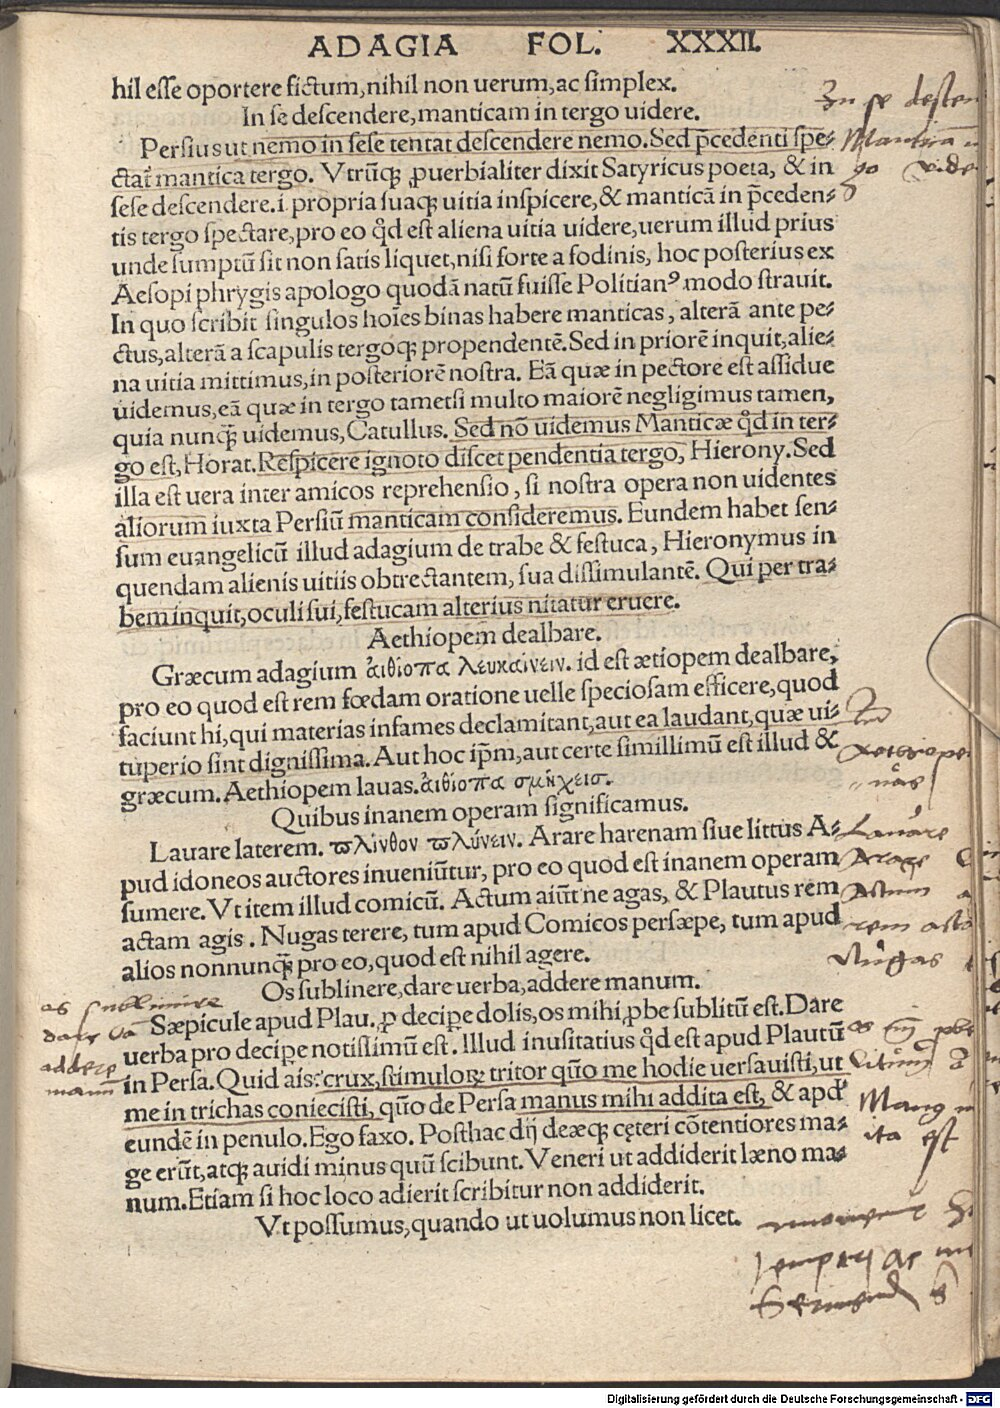 ADAGIA FOL. XXXII.
hil esse oportere fictum, nihil non uerum, ac simplex.
In se descendere, manticam in tergo uidere.
Persius ut nemo in sese tentat descendere nemo. Sed p̄cedenti spe-
ctat᷑ mantica tergo. Vtrūq; ꝓuerbialiter dixit Satyricus poeta, & in
sese descendere. i. propria suaq; uitia inspicere, & manticā in p̄ceden-
tis tergo spectare, pro eo qd̓ est aliena uitia uidere, uerum illud prius
unde sumptū sit non satis liquet, nisi forte a fodinis, hoc posterius ex
Aesopi phrygis apologo quodā natū fuisse Politianꝰ modo strauit.
In quo scribit singulos hoīes binas habere manticas, alterā ante pe-
ctus, alterā a scapulis tergoq; propendentē. Sed in priorē inquit, alie-
na uitia mittimus, in posteriorē nostra. Eā quæ in pectore est assidue
uidemus, eā quæ in tergo tametsi multo maiorē negligimus tamen,
quia nunq̄; uidemus, Catullus. Sed nō uidemus Manticæ qd̓ in ter-
go est, Horat. Respicere ignoto discet pendentia tergo, Hierony. Sed
illa est uera inter amicos reprehensio, si nostra opera non uidentes
aliorum iuxta Persiū manticam consideremus. Eundem habet sen-
sum euangelicū illud adagium de trabe & festuca, Hieronymus in
quendam alienis uitiis obtrectantem, sua dissimulantē. Qui per tra-
bem inquit, oculi sui, festucam alterius nitatur eruere.
Aethiopem dealbare.
Græcum adagium ἀιθίοπα λευκαίνειν. id est ætiopem dealbare,
pro eo quod est rem fœdam oratione uelle speciosam efficere, quod
faciunt hi, qui materias infames declamitant, aut ea laudant, quæ ui-
tuperio sint dignissima. Aut hoc ip̄m, aut certe simillimū est illud &
græcum. Aethiopem lauas. ἀιθίοπα σμήχεισ.
Quibus inanem operam significamus.
Lauare laterem. πλίνθον πλύνειν. Arare harenam siue littus A-
pud idoneos auctores inueniūtur, pro eo quod est inanem operam
sumere. Vt item illud comicū. Actum aiūt ne agas, & Plautus rem
actam agis. Nugas terere, tum apud Comicos persæpe, tum apud
alios nonnunq̄; pro eo, quod est nihil agere.
Os sublinere, dare uerba, addere manum.
Sæpicule apud Plau. ꝓ decipe dolis, os mihi, ꝓbe sublitū est. Dare
uerba pro decipe notissimū est. Illud inusitatius qd̓ est apud Plautū
in Persa. Quid ais: crux, stimuloꝝ tritor quō me hodie uersauisti, ut
me in trichas coniecisti, quō de Persa manus mihi addita est, & apd̓
eundē in penulo. Ego faxo. Posthac dij deæq; cęteri cōtentiores ma-
ge erūt, atq; auidi minus quū scibunt. Veneri ut addiderit læno ma-
num. Etiam si hoc loco adierit scribitur non addiderit.
Vt possumus, quando ut uolumus non licet.
In se descen
Lauare
Arare
Actum a
rem acta
Nugas
os sublinire
dare
addere
manū
Manꝰ m
ita est
Digitalisierung gefördert durch die Deutsche Forschungsgemeinschaft - DFG